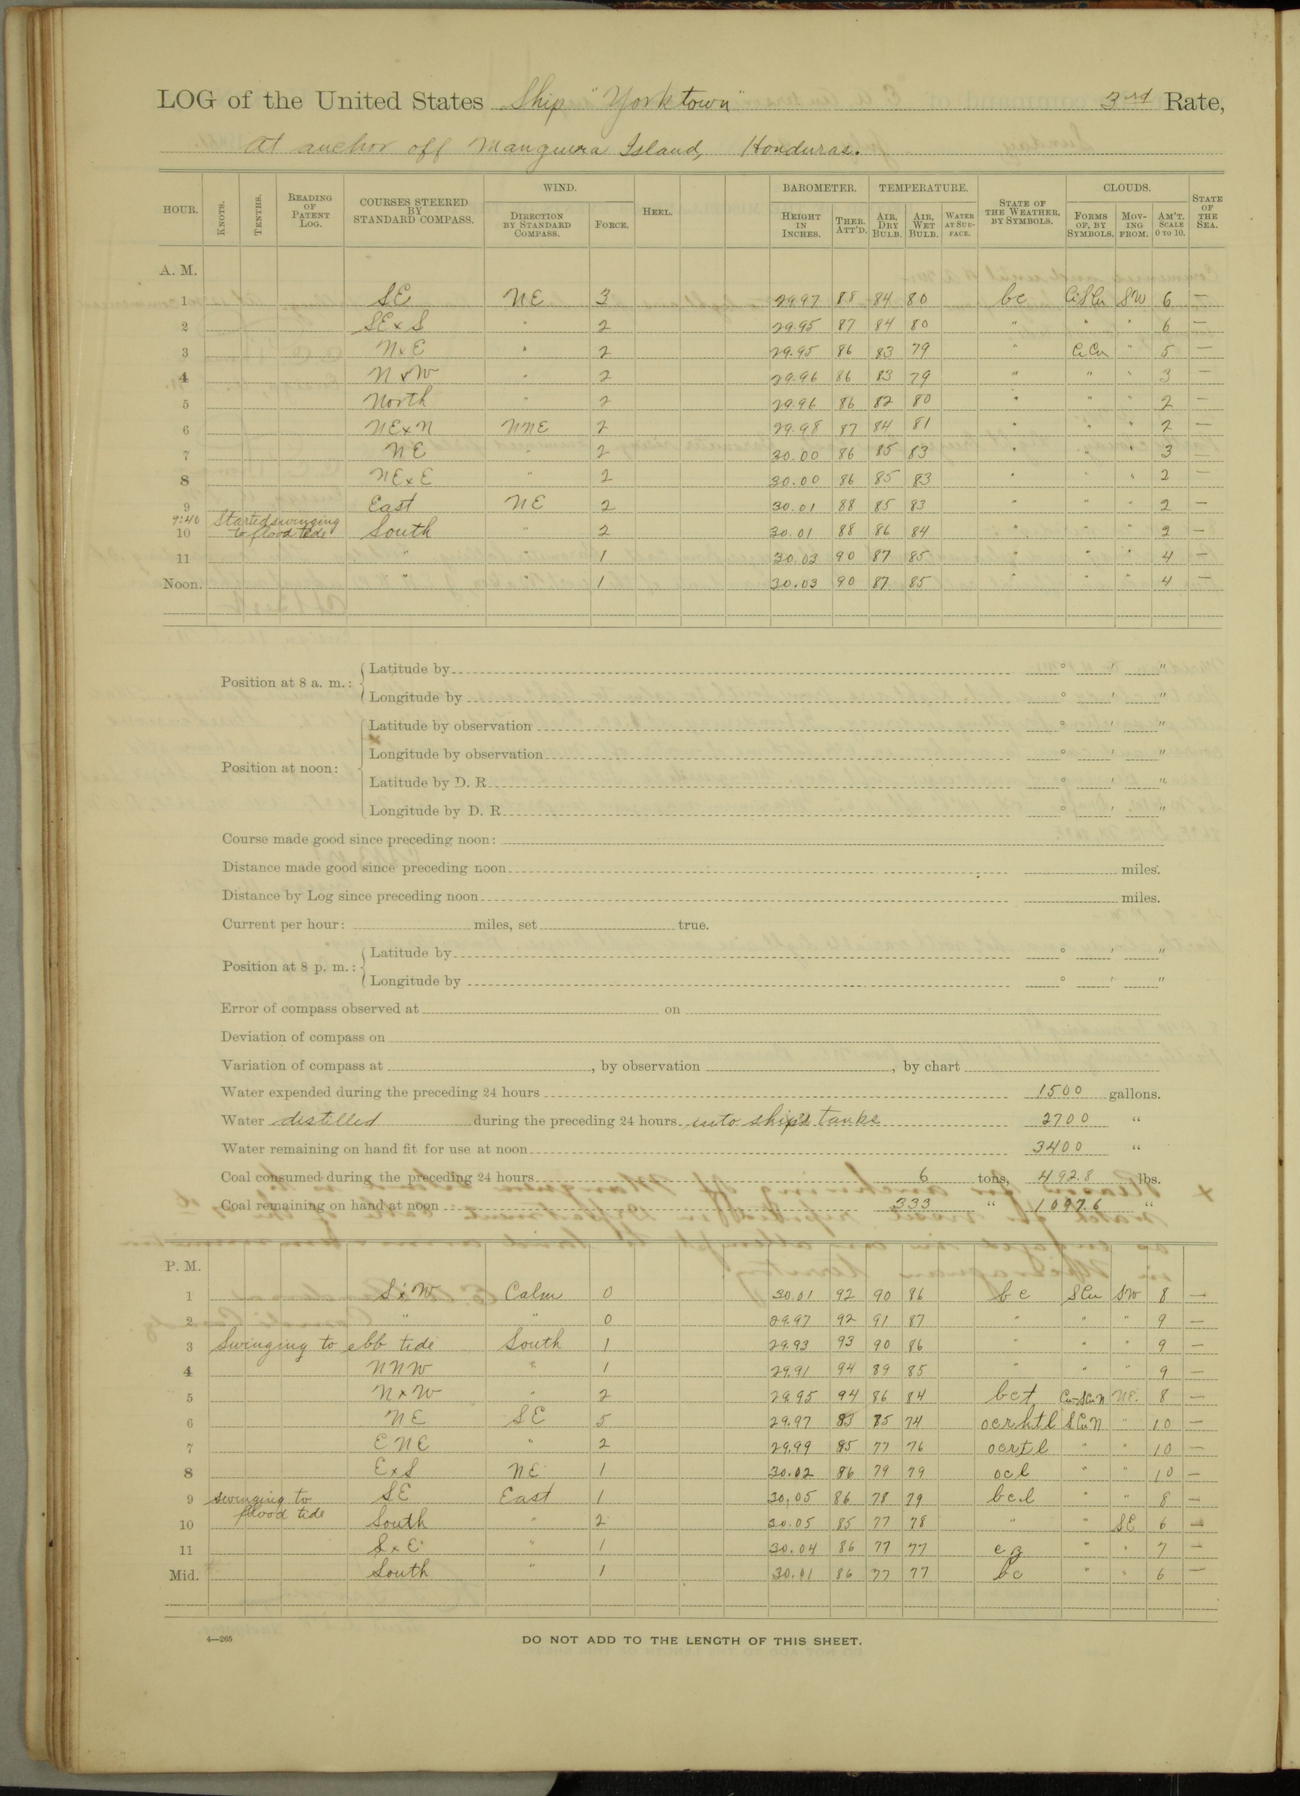 LOG of the United States Ship "Yorktown" 3rd Rate,
At anchor off Manguera Island, Honduras.
HOUR. KNOTS. TENTHS. READING OF PATENT LOG. COURSES STEERED BY STANDARD COMPASS. WIND. DIRECTION BY STANDARD COMPASS. FORCE. HEEL. BAROMETER. HEIGHT IN INCHES. THER. ATT'D. TEMPERATURE. AIR, DRY BULB. AIR, WET BULB. WATER AT SURFACE. STATE OF THE WEATHER, BY SYMBOLS. CLOUDS. FORMS OF, BY SYMBOLS. MOVING FROM. AM'T. SCALE 0 TO 10. STATE OF THE SEA.
A. M.
1 SE NE 3 29.97 88 84 80 bc Ci S Cu SW 6 —
2 SExS " 2 29.95 87 84 80 " " " 6 —
3 NxE " 2 29.95 86 83 79 " Ci Cu " 5 —
4 NxW " 2 29.96 86 83 79 " " " 3 —
5 North " 2 29.96 86 82 80 " " " 2 —
6 NExN NNE 2 29.98 87 84 81 " " " 2 —
7 NE " 2 30.00 86 85 83 " " " 3 —
8 NExE " 2 30.00 86 85 83 " " " 2 —
9 East NE 2 30.01 88 85 83 " " " 2 —
9:40 Started swinging
10 to flood tide South " 2 30.01 88 86 84 " " " 2 —
11 " " 1 30.03 90 87 85 " " " 4 —
Noon. " " 1 30.03 90 87 85 " " " 4 —
Position at 8 a. m.: Latitude by ° ′ ″
Longitude by ° ′ ″
Position at noon: Latitude by observation ° ′ ″
Longitude by observation ° ′ ″
Latitude by D. R. ° ′ ″
Longitude by D. R. ° ′ ″
Course made good since preceding noon:
Distance made good since preceding noon miles.
Distance by Log since preceding noon miles.
Current per hour: miles, set true.
Position at 8 p. m.: Latitude by ° ′ ″
Longitude by ° ′ ″
Error of compass observed at on
Deviation of compass on
Variation of compass at , by observation , by chart
Water expended during the preceding 24 hours 1500 gallons.
Water distilled during the preceding 24 hours into ship's tanks 2700 "
Water remaining on hand fit for use at noon 3400 "
Coal consumed during the preceding 24 hours 6 tons, 492.8 lbs.
Coal remaining on hand at noon 333 " 1097.6 "
P. M.
1 SxW Calm 0 30.01 92 90 86 bc S Cu SW 8 —
2 " " 0 29.97 92 91 87 " " " 9 —
3 Swinging to ebb tide South 1 29.93 93 90 86 " " " 9 —
4 NNW " 1 29.91 94 89 85 " " " 9 —
5 NxW " 2 29.95 94 86 84 bct Cu-SCuN NE. 8 —
6 NE SE 5 29.97 83 85 74 S Cu N " 10 —
7 ENE " 2 29.99 85 77 76 ocrtl " " 10 —
8 ExS NE 1 30.02 86 79 79 ocl " " 10 —
9 Swinging to SE East 1 30.05 86 78 79 bcl " " 8 —
flood tide
10 South " 2 30.05 85 77 78 " " SE 6 —
11 SxE " 1 30.04 86 77 77 " " 7 —
Mid. South " 1 30.01 86 77 77 bc " " 6 —
4—265
DO NOT ADD TO THE LENGTH OF THIS SHEET.